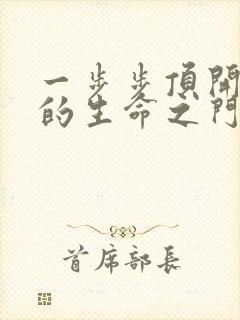 一步步頂開
的生命之門
首席部長